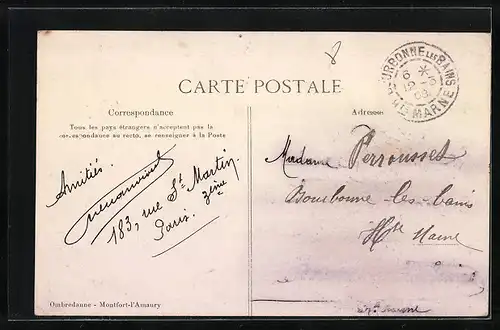 8
CARTE POSTALE
BOURBONNE LES BAINS
Hte MARNE
Correspondance
Tous les pays étrangers n'acceptent pas la
correspondance au recto, se renseigner à la Poste
Amitiés.
183, rue St Martin.
3ème
Paris.
Adresse
Madame Perrousset
Bourbonne-les-bains
Hte Marne
Ombredanne - Montfort-l'Amaury